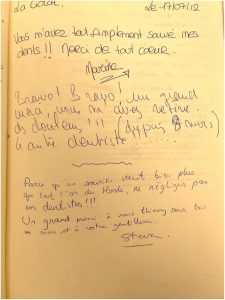 La Gaude Le 17/07/12
Vous m'avez tout simplement sauvé mes
dents!! Merci de tout coeur.
Martine
Bravo! Bravo! un grand
vous m'avez retiré
des douleurs!!! (depuis 8 mois)
dentiste
Parce qu'un sourire vaut bien plus
que tout l'or du Monde, ne négligez pas
vos dentistes!!!
Un grand merci à vous Thierry pour
vos soins, et à votre gentillesse.
Steven